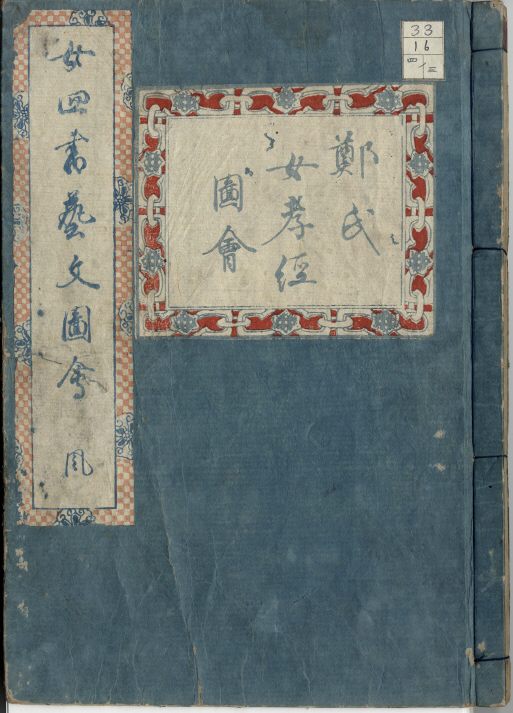 33
16
四
仁三
鄭氏
女孝經
圖會
女四書藝文圖會 風